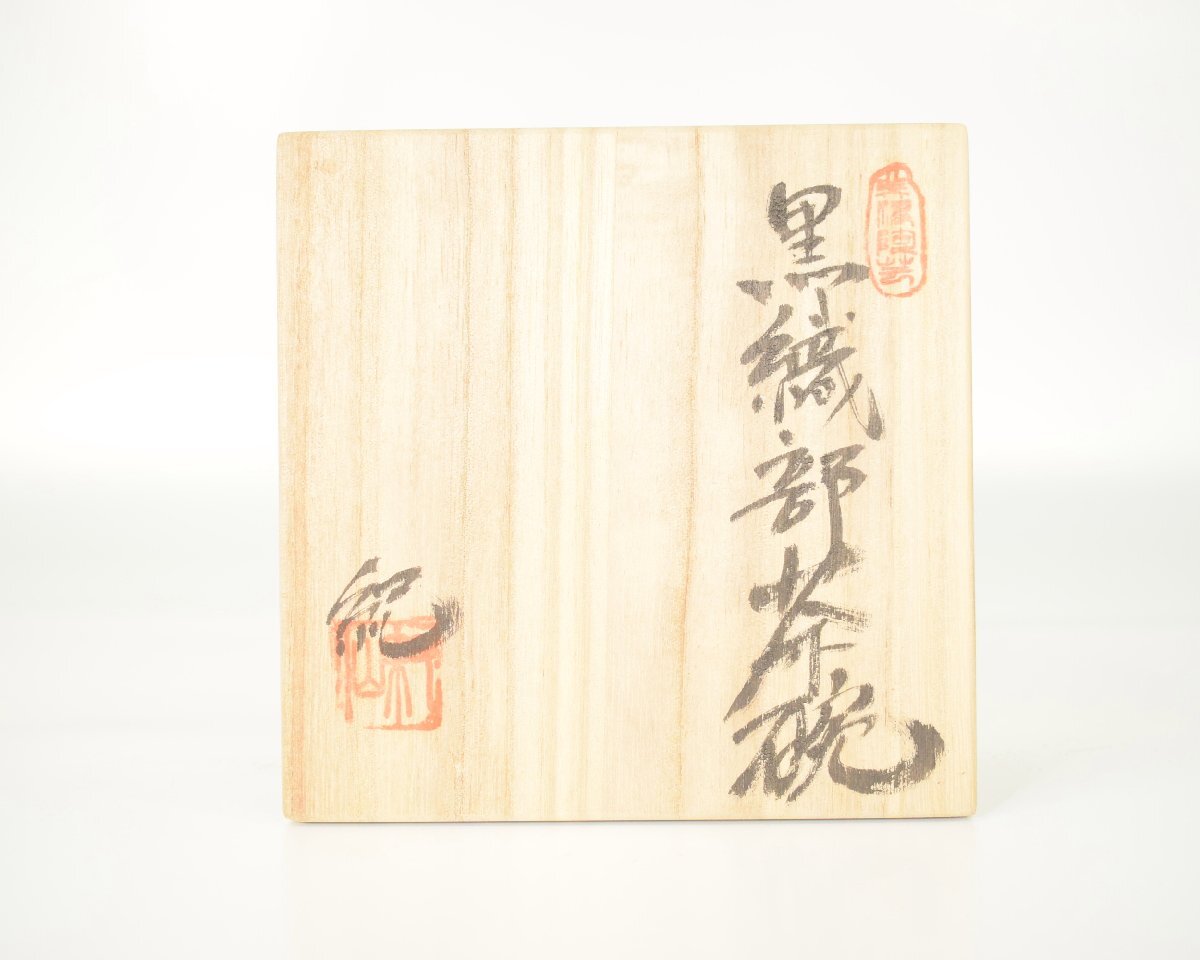 黒織部茶碗
紀